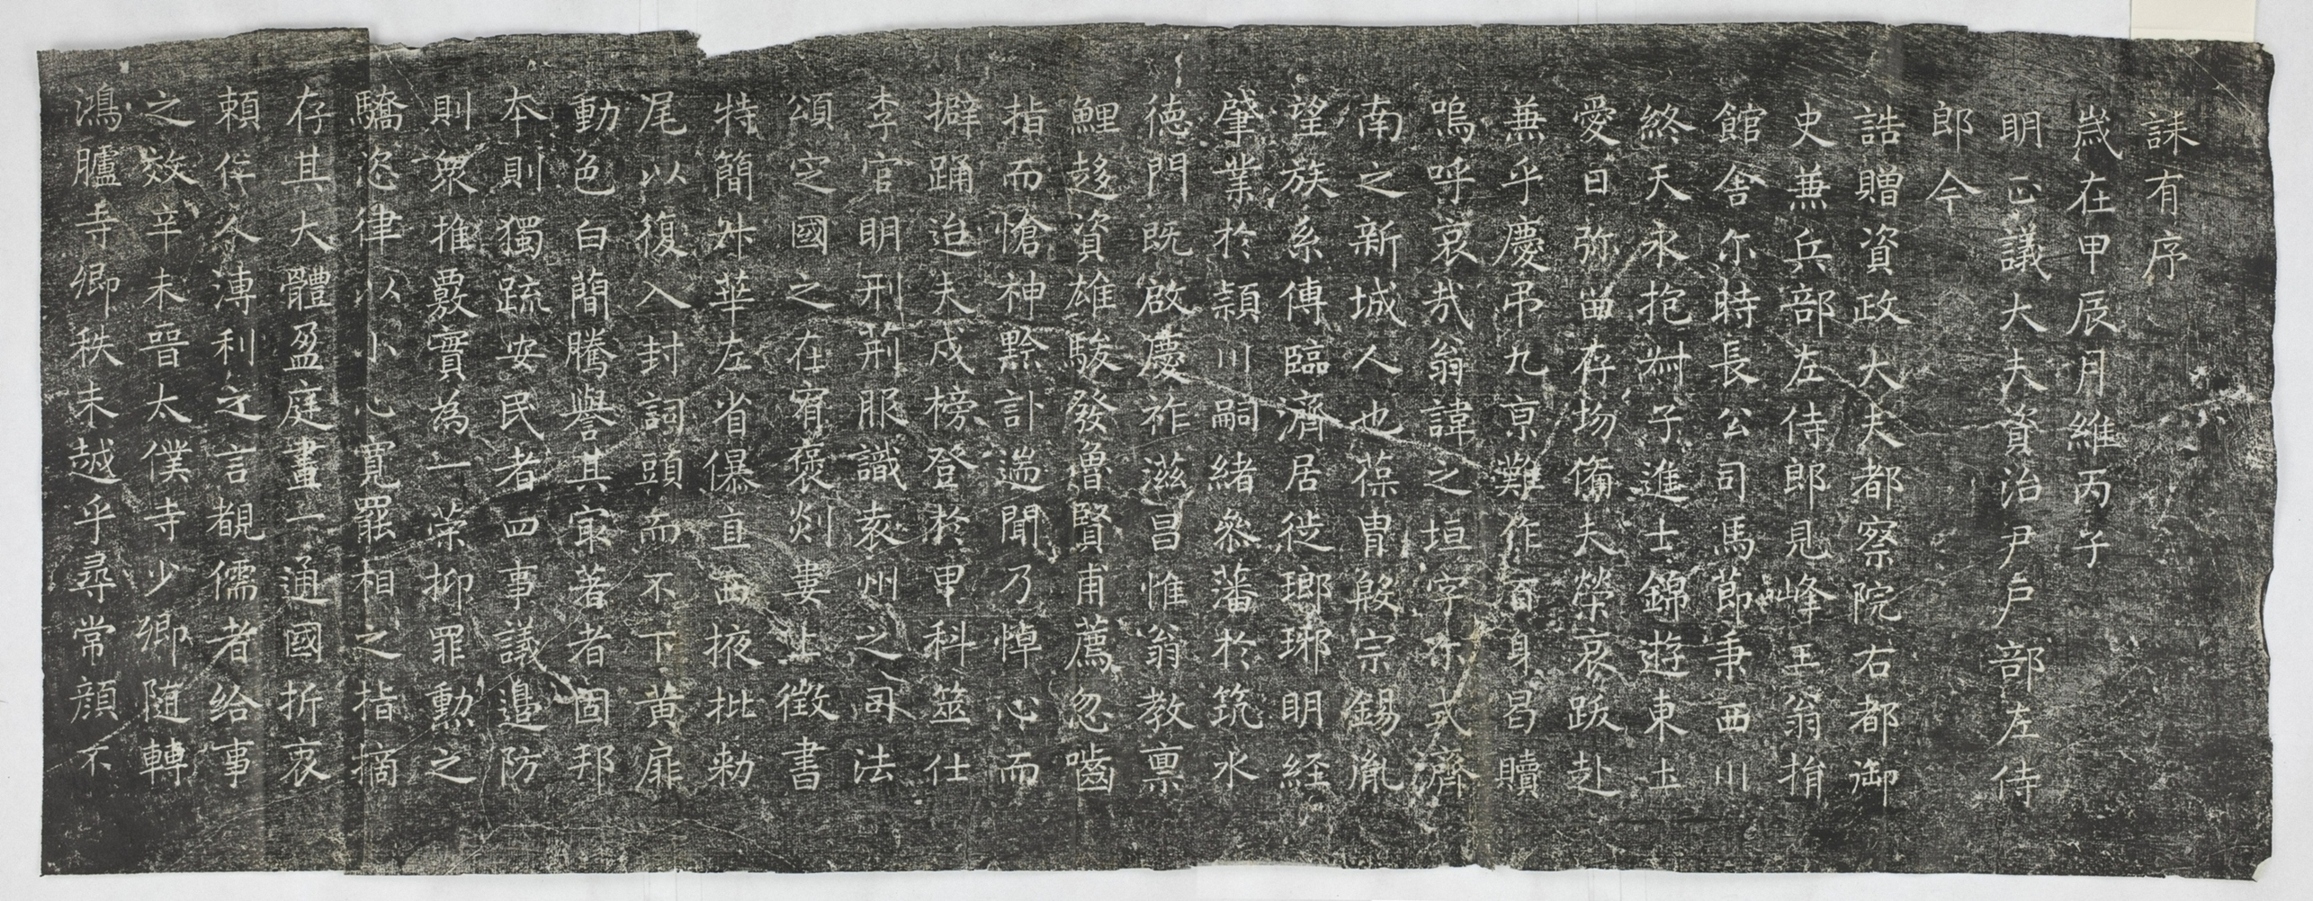 誄有序
歲在甲辰月維丙子
明正議大夫資治尹戶部左侍
郎今
誥贈資政大夫都察院右都御
史兼兵部左侍郎見峰王翁捐
館舍尒時長公司馬節秉西川
終天永抱尌子進士錦遊東土
愛日弥留存場備夫榮哀踐赴
兼乎慶弔九京難作百身曷贖
嗚呼哀哉翁諱之垣字尒式濟
南之新城人也葆胄殷宗錫胤
望族系傅臨濟居徙瑯琊明經
肇業於潁川嗣緒叅藩於筑水
德門既啟慶祚滋昌惟翁教稟
鯉趍資雄駿發魯賢甫薦忽嚙
指而愴神黔訃遄聞乃悼心而
擗踊迨夫戍榜登於甲科筮仕
李官明刑荊服識袁州之司法
頌定國之在宥褒剡婁上徵書
特簡升華左省僺直西掖批勑
尾以復入封詞頭而不下黃扉
動色白蕳騰譽其㝡著者固邦
本則獨疏安民者四事議邉防
則衆推覈實為一荣抑罪勲之
驕恣律以小心寬罷相之指摘
存其大體盈庭畫一通國折衷
賴侔久溥利之言覩儒者給事
之效辛未晉太僕寺少卿随轉
鴻臚寺卿秩未越乎尋常顏不